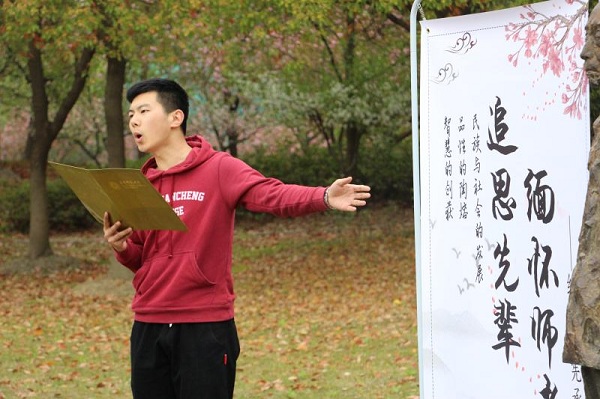 缅怀师
追思先辈
民族与社会的发展
品性的陶熔
智慧的创获
NCHENG